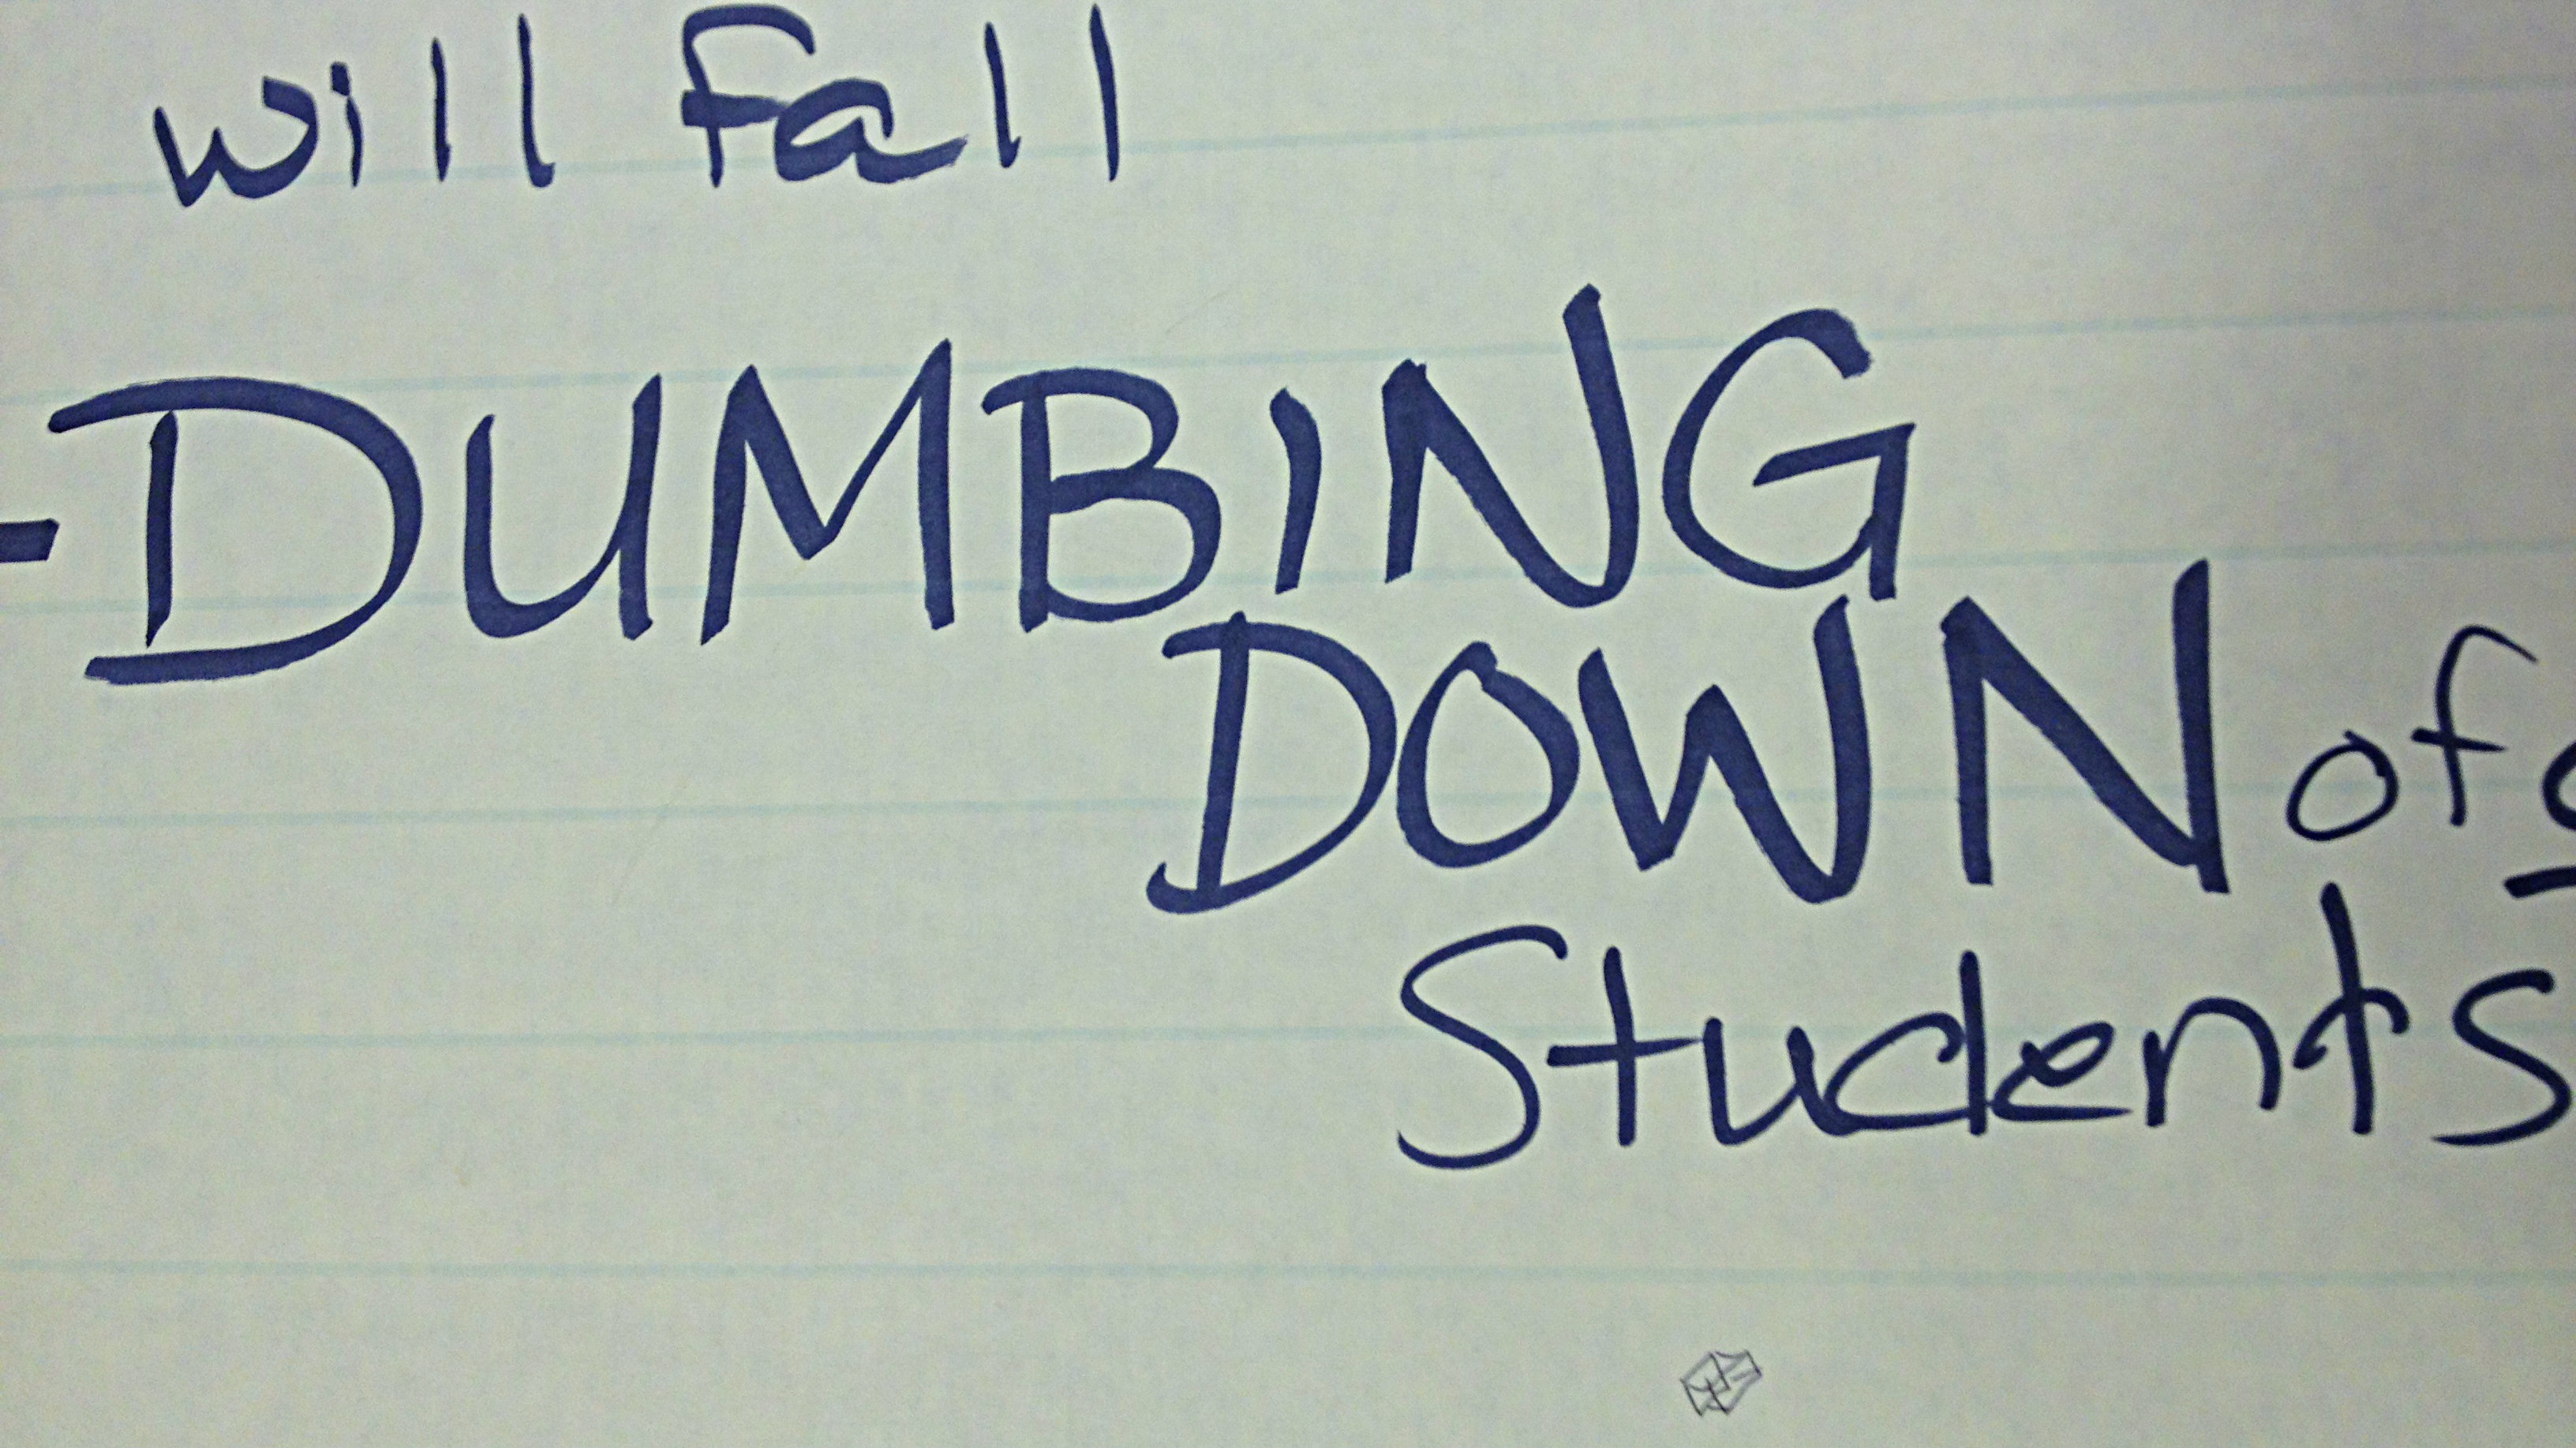 will Fall
-DUMBING
DOWN of
Students